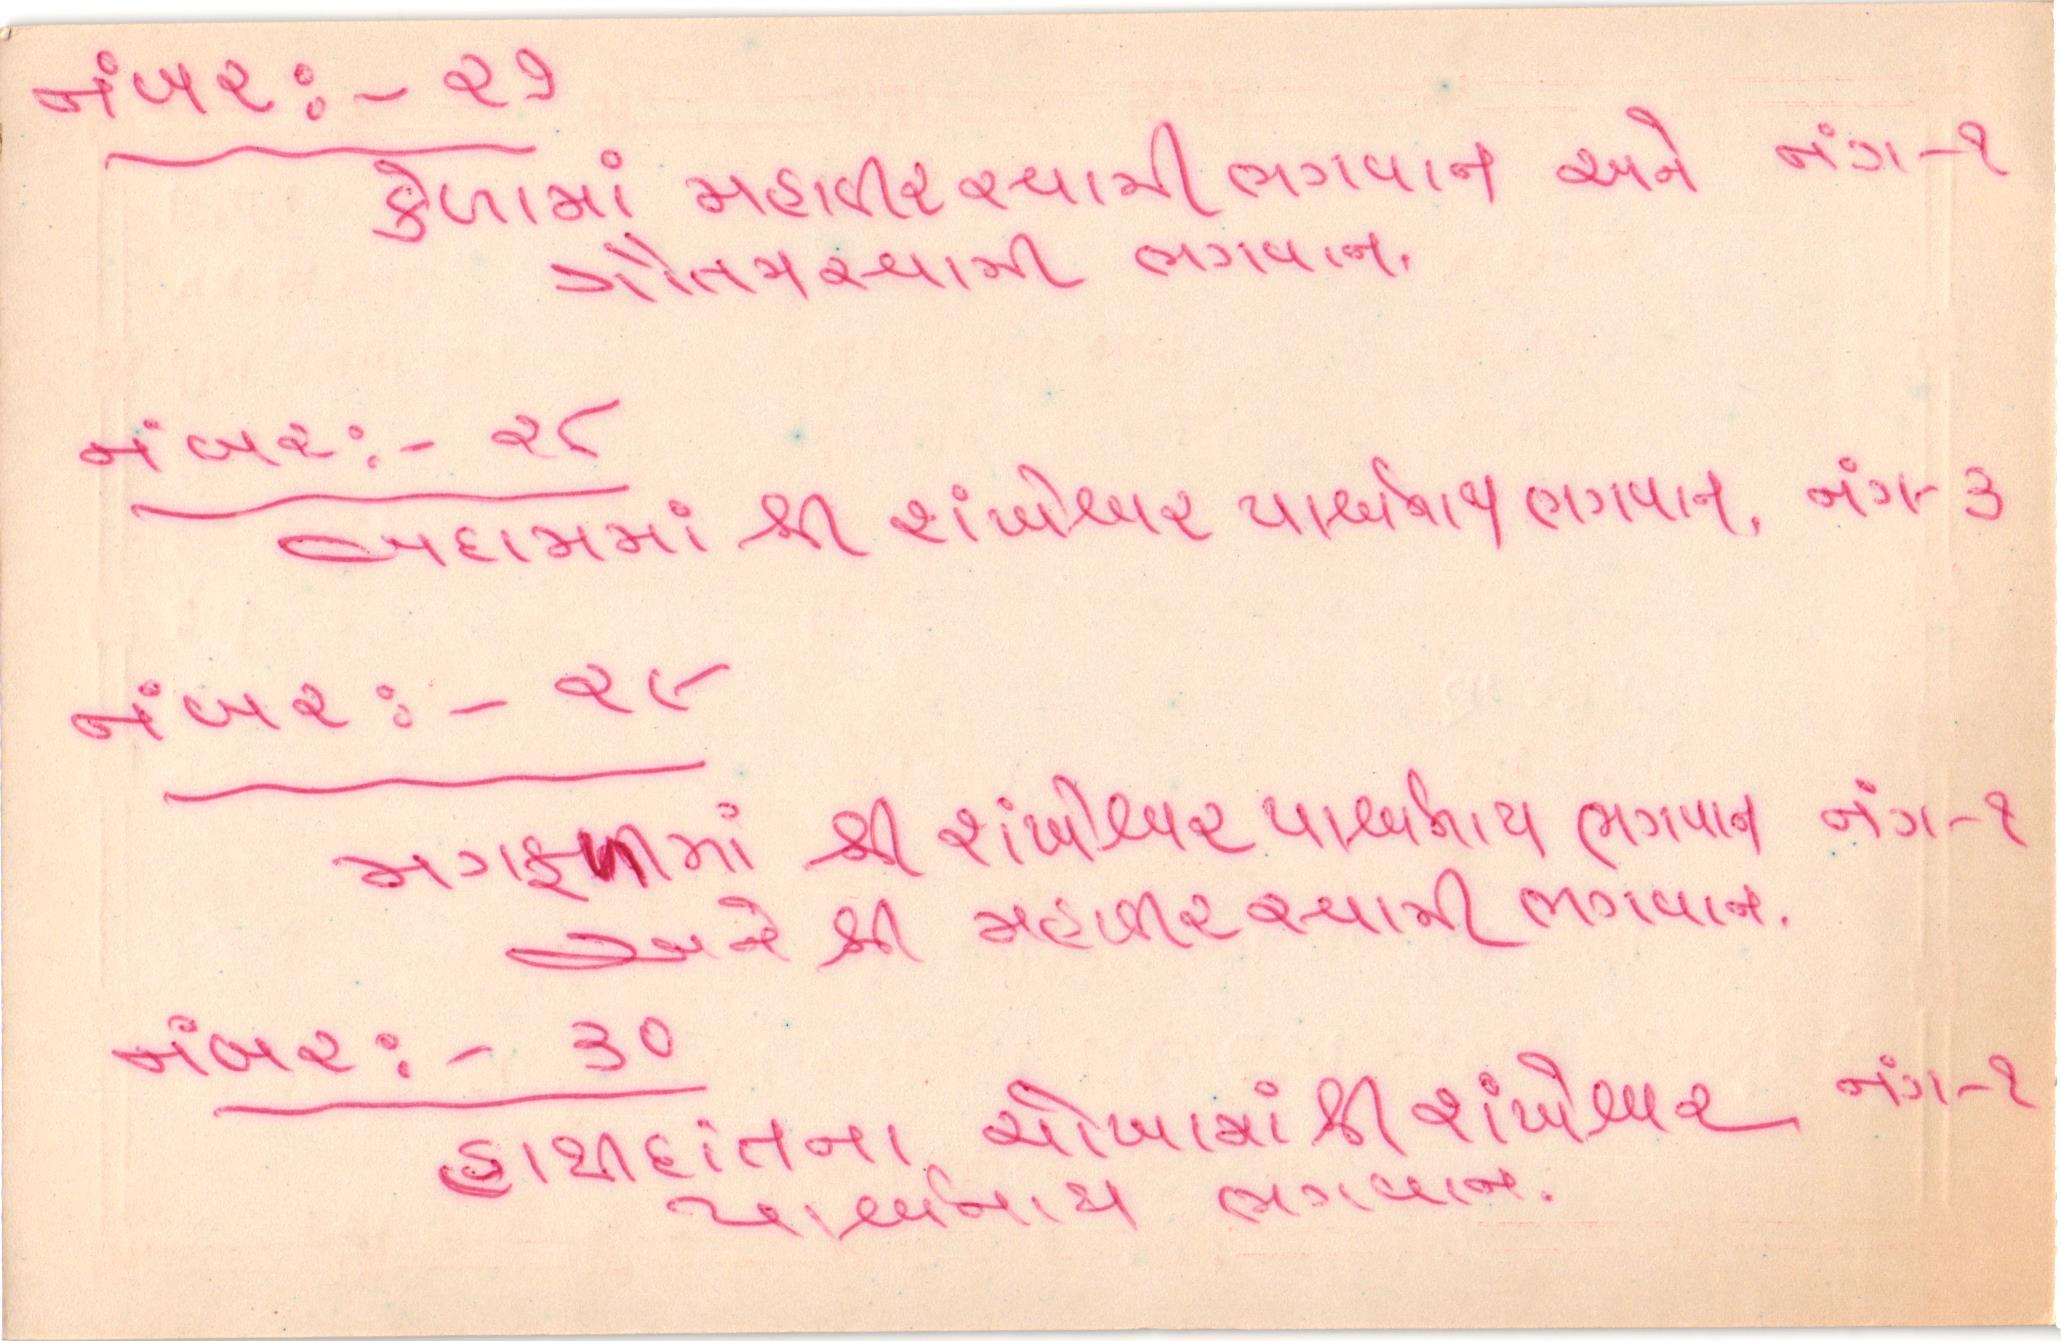 નંબર:- ૨૭
કેળામાં મહાવીરસ્વામી ભગવાન અને નંગ-૧
ગૌતમસ્વામી ભગવાન.
નંબર:- ૨૮
બદામમાં શ્રી શંખેશ્વર પાર્શ્વનાથ ભગવાન. નંગ-૩
નંબર:- ૨૯
મગફળીમાં શ્રી શંખેશ્વર પાર્શ્વનાથ ભગવાન નંગ-૧
અને શ્રી મહાવીરસ્વામી ભગવાન.
નંબર:- ૩૦
હાથીદાંતના ચોખામાં શ્રી શંખેશ્વર નંગ-૧
પાર્શ્વનાથ ભગવાન.